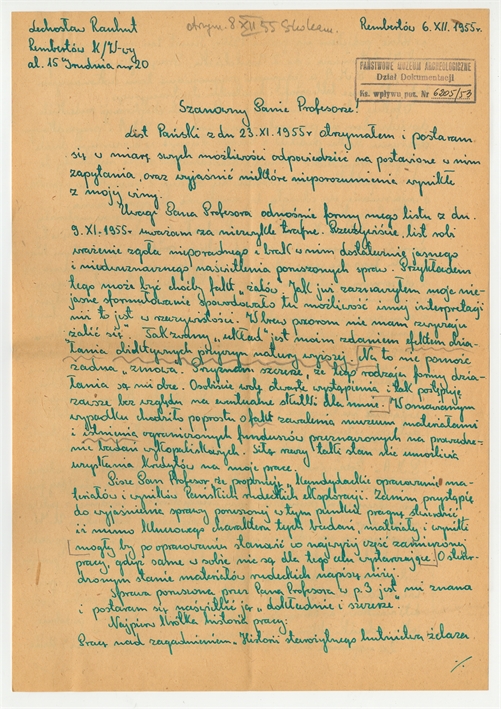 Lechosław Rauhut
Rembertów k/W-wy
al. 15 Grudnia nr 20
otrzym. 8 XII 55
Rembertów 6. XII. 1955r.
PAŃSTWOWE MUZEUM ARCHEOLOGICZNE
Dział Dokumentacji
Ks. wpływu poz. Nr 6205/53
Szanowny Panie Profesorze!
List Pański z dn 23. XI. 1955r otrzymałem i postaram
się w miarę swych możliwości odpowiedzieć na postawione w nim
zapytania, oraz wyjaśnić niektóre nieporozumienia wynikłe
z mojej winy.
Uwagi Pana Profesora odnośnie formy mego listu z dn.
9. XI. 1955r uważam za niezwykle trafne. Rzeczywiście, list robi
wrażenie zgoła nieporadnego i brak w nim dostatecznie jasnego
i niedwuznacznego naświetlenia poruszonych spraw. Przykładem
tego może być choćby fakt „żalów". Jak już zaznaczyłem moje nie-
jasne sformułowanie spowodowało tę możliwość innej interpretacji
niż to jest w rzeczywistości. Wbrew pozorom nie mam zwyczaju
„żalić się". Tak zwany „układ" jest moim zdaniem efektem dzia-
łania obiektywnych przyczyn natury wyższej. Na to nie pomoże
żadna „zmowa". Przyznam szczerze, że tego rodzaju formy dzia-
łania są mi obce. Osobiście wolę otwarte wystąpienia i tak postępuję
zawsze bez względu na ewentualne skutki dla mnie. W omawianym
wypadku chodziło poprostu o fakt zawalenia muzeum materiałami
i istnienia ograniczonych funduszów przeznaczonych na prowadze-
nie badań wykopaliskowych. Siłą rzeczy taki stan nie umożliwia
uzyskania kredytów na moje prace.
Pisze Pan Profesor że proponuje „kandydackie opracowanie ma-
teriałów i wyników Pańskich rudeckich eksploracji. Zanim przystąpię
do wyjaśnienia sprawy poruszonej w tym punkcie pragnę stwierdzić
iż mimo kluczowego charakteru tych badań, materiały i wyniki
mogłyby po opracowaniu stanowić co najwyżej część zamierzonej
pracy, gdyż same w sobie nie są dla tego celu wystarczające. O
stanie materiałów rudeckich napiszę niżej.
Sprawa poruszona przez Pana Profesora w p. 3 jest mi znana
i postaram się naświetlić ją „dokładnie i szczerze".
Najpierw krótka historia pracy:
Pracę nad zagadnieniem „Historii starożytnego hutnictwa żelaza.
./.